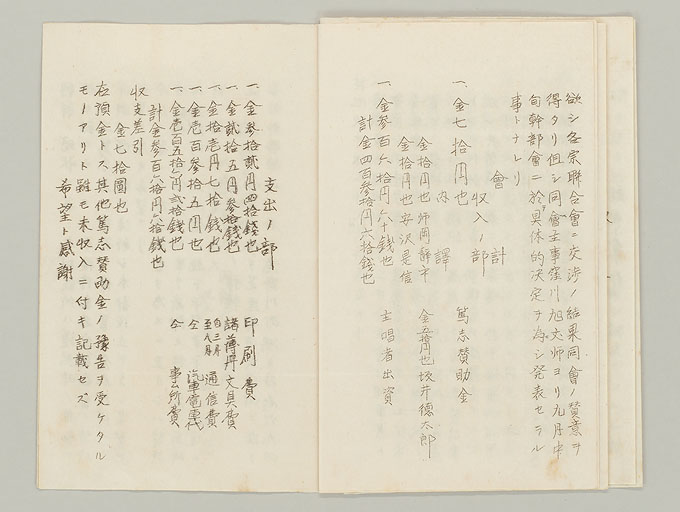 欲シ各宗聯合會ニ交渉ノ結果同會ノ賛意ヲ
得タリ但シ同會主事窪川旭丈師ヨリ九月中
旬幹部會ニ於具体的決定ヲ為シ発表セラル
事トナレリ
會計
収入ノ部
一、金七拾円也 篤志賛助金
内譯
金拾円也 師岡静宇 金五拾円也 坂井徳太郎
金拾円也 安沢是信
一、金参百六拾円六十銭也 主唱者出資
計金四百参拾円六拾銭也
支出ノ部
一、金参拾貮円四拾銭也 印刷費
一、金貮拾五円参拾銭也 諸薄丹文具費
一、金拾壱円七拾銭也 自三月至八月 通信費
一、金壱百参拾五円也 仝 汽車電車代
一、金壱百五拾六円貮拾銭也 仝 事ム所費
計金参百六拾円六拾銭也
収支差引
金七拾圓也
在預金トス其他篤志賛助金ノ豫告ヲ受ケタル
モノアリト雖モ未収入ニ付キ記載セズ
希望ト感謝